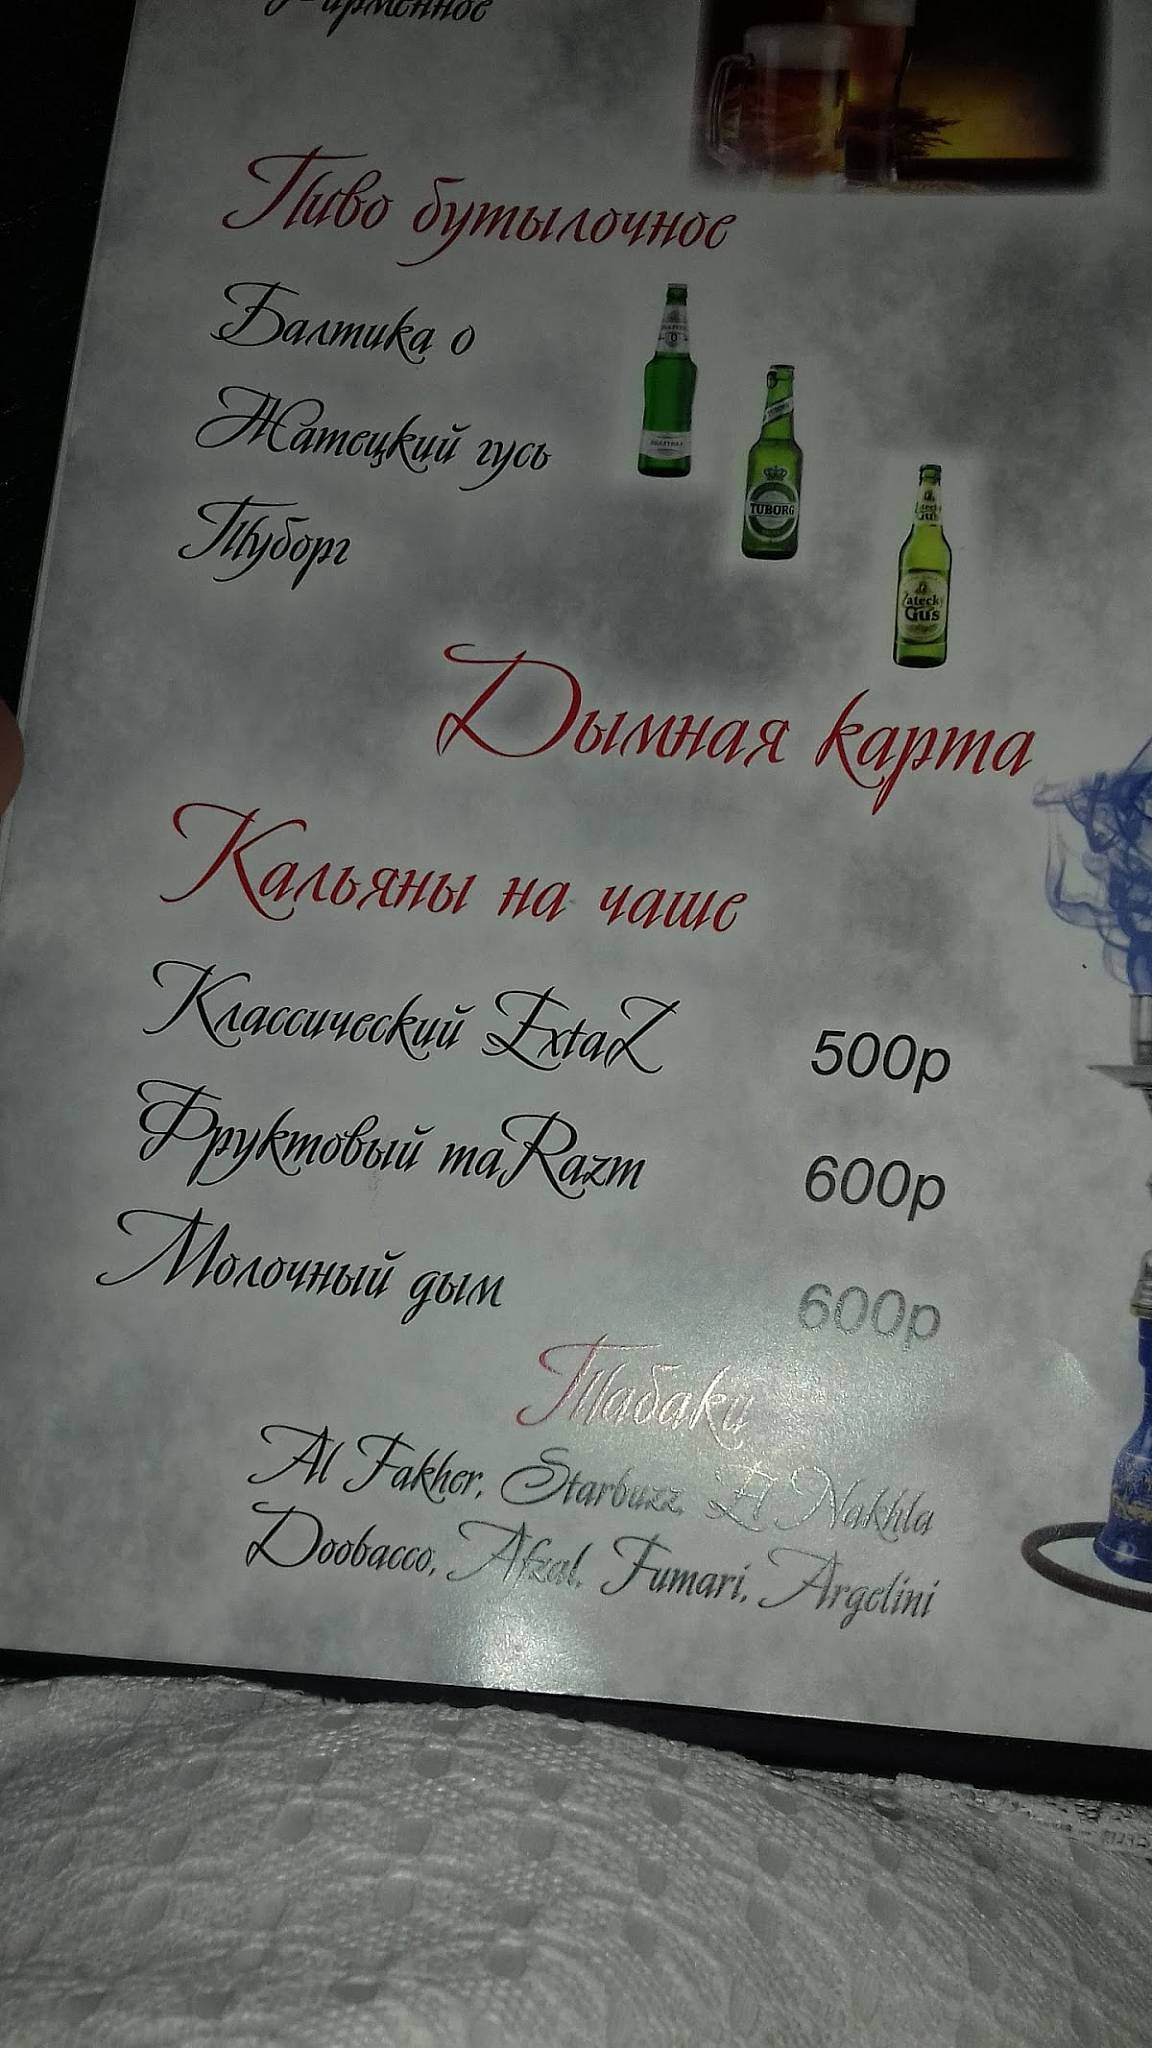 Пиво бутылочное
Балтика 0
Жатецкий гусь
Туборг
TUBORG
Zatecky
Gus
Дымная карта
Кальяны на чаше
Классический ExtaZ 500р
Фруктовый maRazm 600р
Молочный дым 600р
Табаки
Al Fakher, Starbuzz, El Nakhla
Doobacco, Afzal, Fumari, Argelini